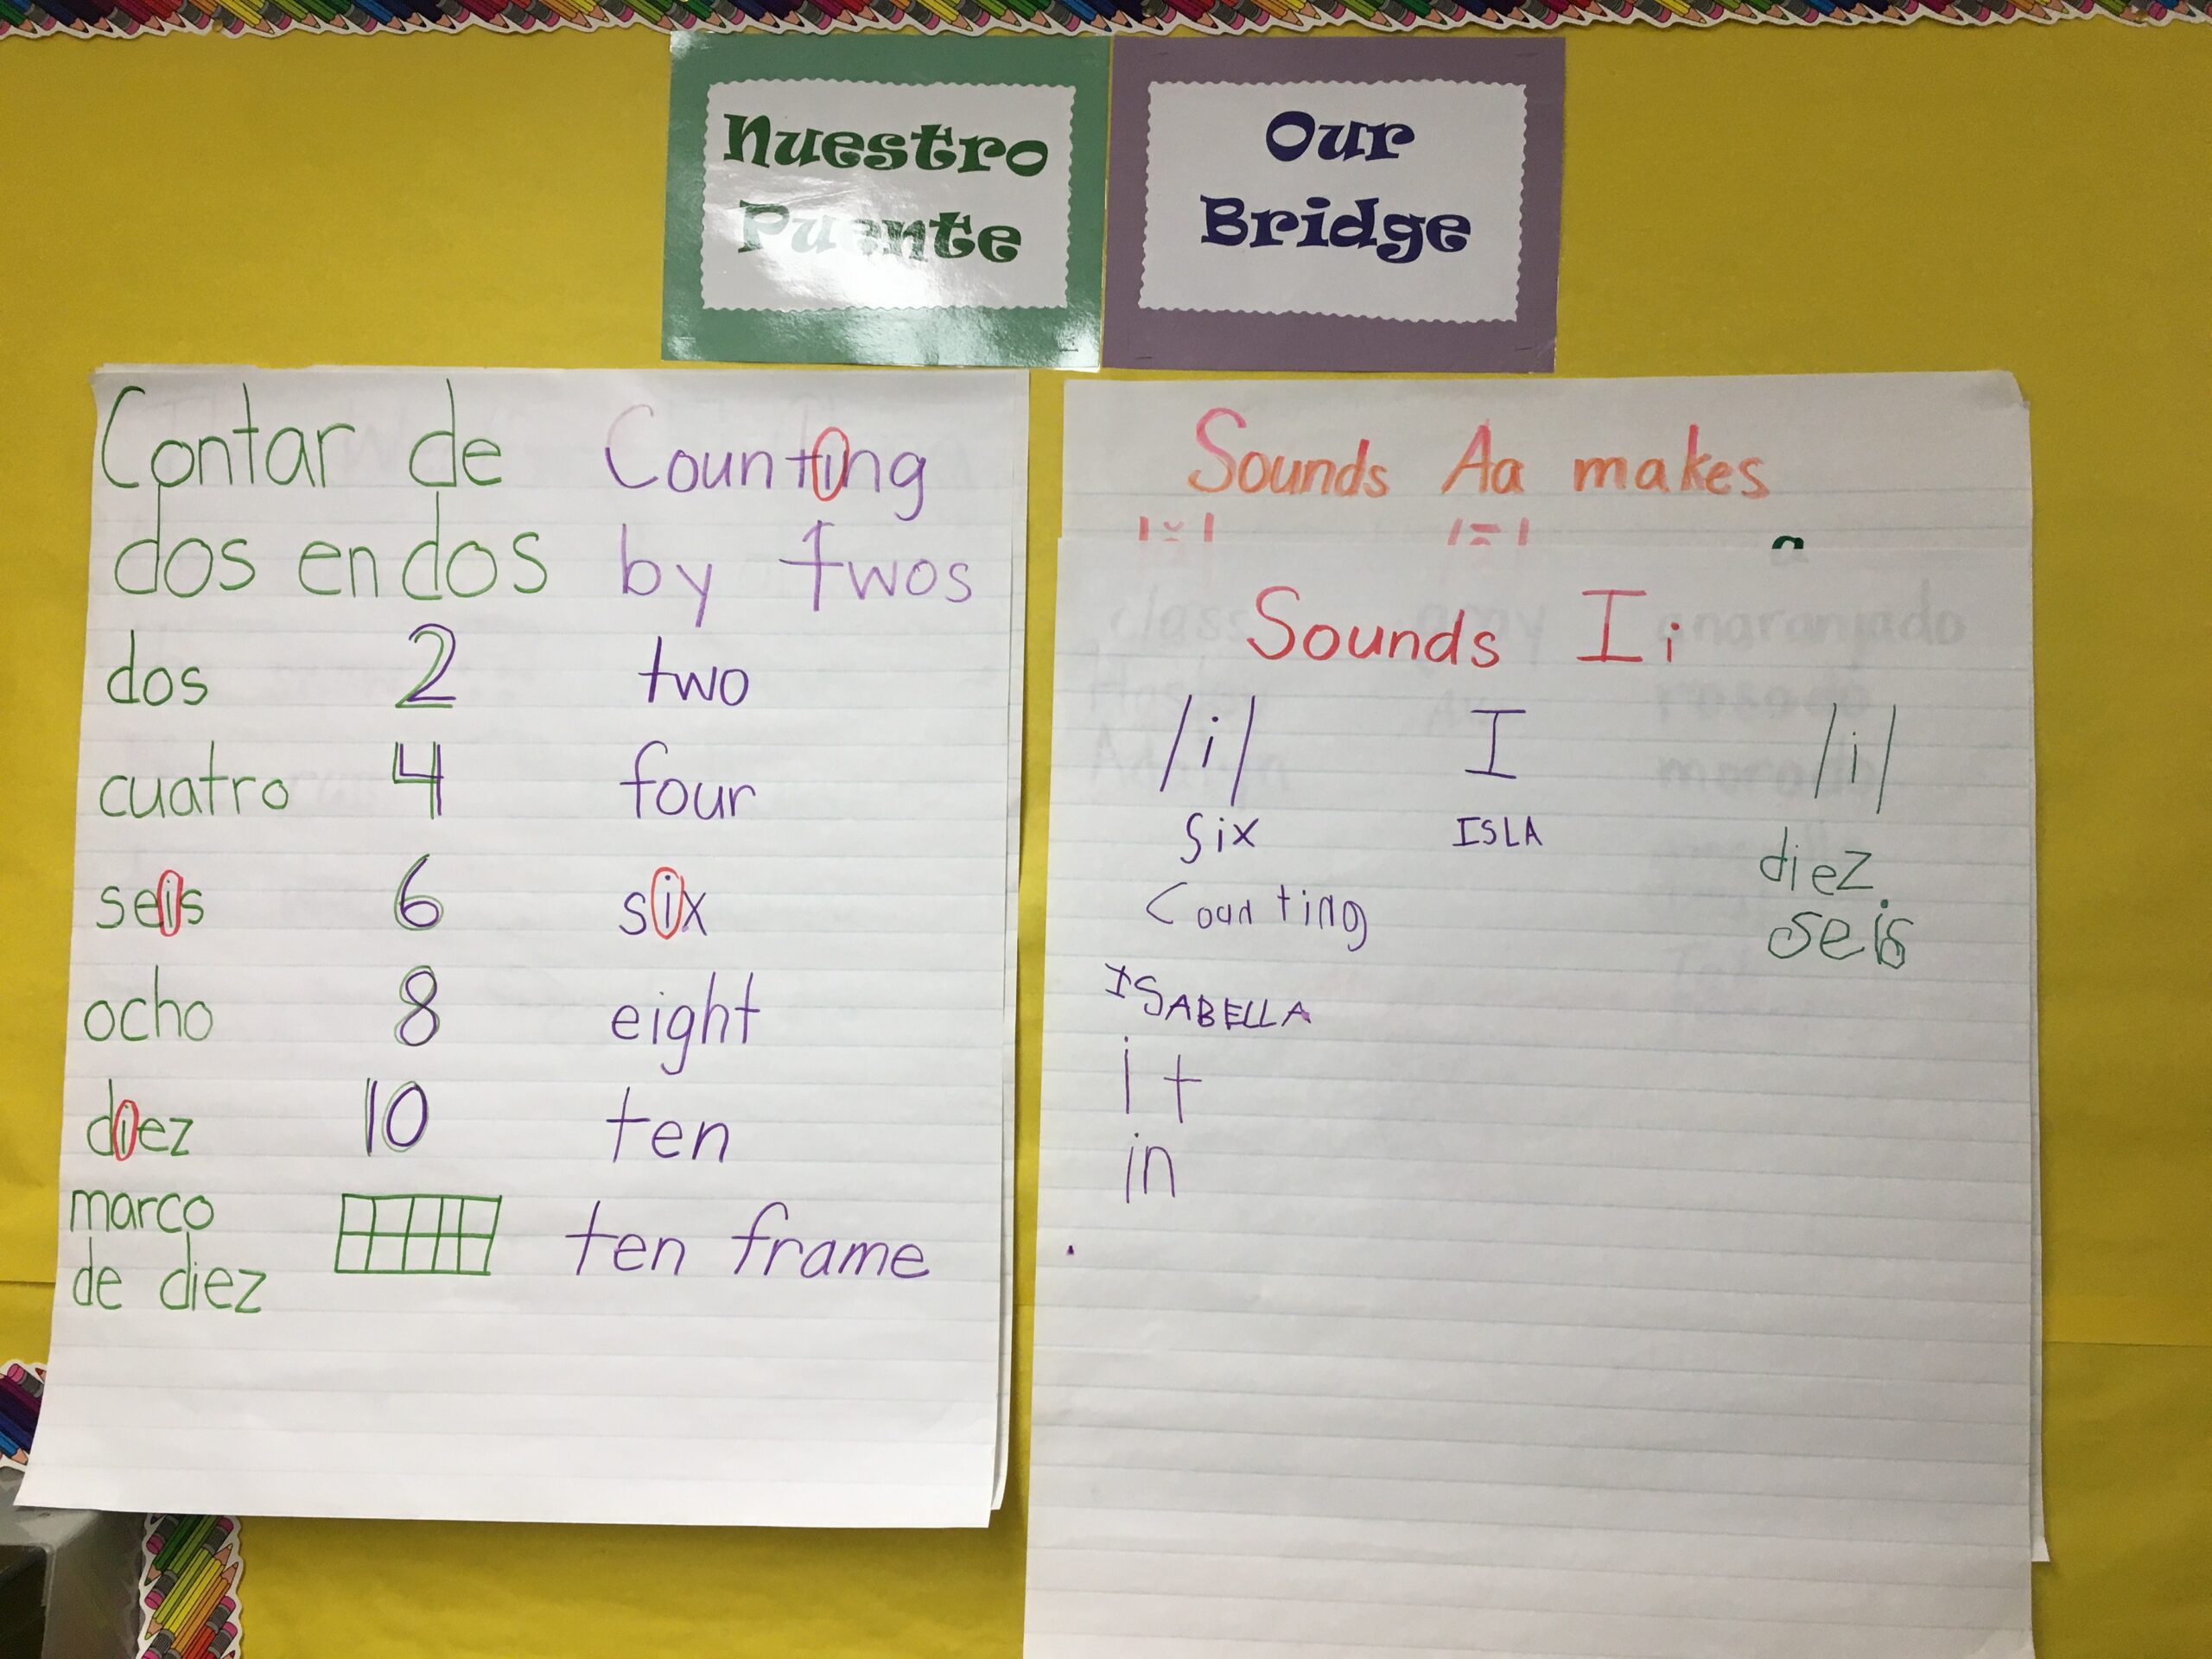 Nuestro
Puente
Our
Bridge
Contar de
dos en dos
Counting
by twos
dos 2 two
cuatro 4 four
seis 6 six
ocho 8 eight
diez 10 ten
marco
de diez
ten frame
Sounds Aa makes
Sounds Ii
/i/ I /i/
six ISLA diez
Counting seis
ISABELLA
it
in